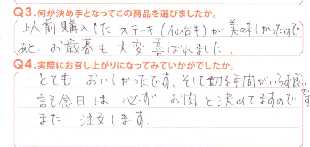 Q3.何が決め手となってこの商品を選びましたか。
以前購入した ステーキ(仙台牛)が美味しかったので
あと、お歳暮も大変喜ばれました。
Q4.実際にお召し上がりになってみていかがでしたか。
とても おいしかったです。そして切る手間がいらず良いです
記念日は 必ず お肉と決めてますので
また 注文します。